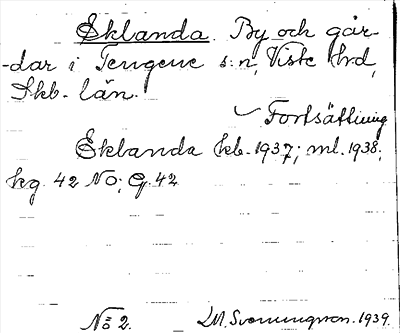 Eklanda. By och går-
-dar i Tengene s:n, Viste hrd,
Skb. län.
Fortsättning
Eklanda kb. 1937; ml. 1938;
kg. 42 NO; G. 42
No 2. LM. Svenungsson. 1939.